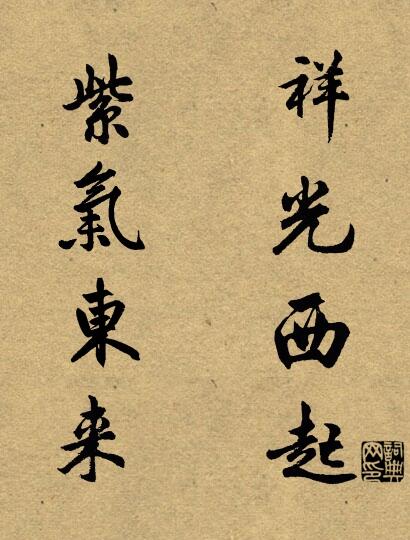 祥光西起
紫氣東来
詞典
网印